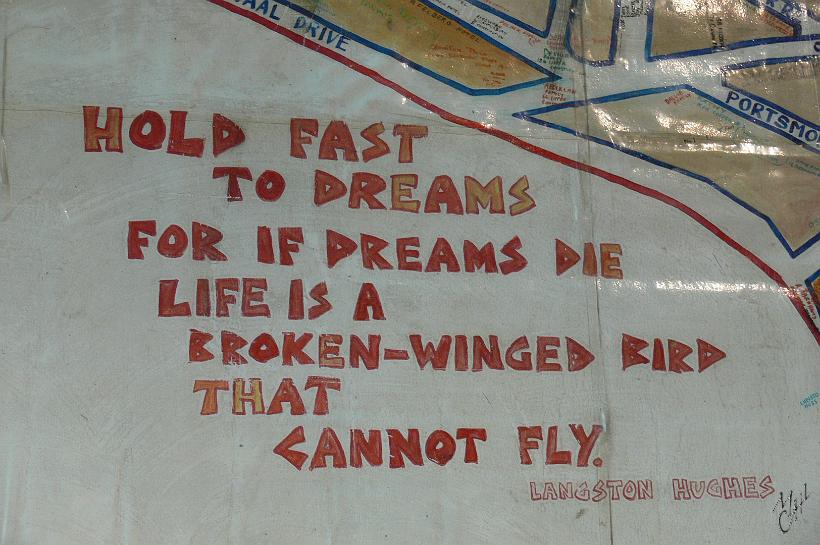 AAL DRIVE
PORTSMO
HOLD FAST
TO DREAMS
FOR IF DREAMS DIE
LIFE IS A
BROKEN-WINGED BIRD
THAT
CANNOT FLY.
LANGSTON HUGHES